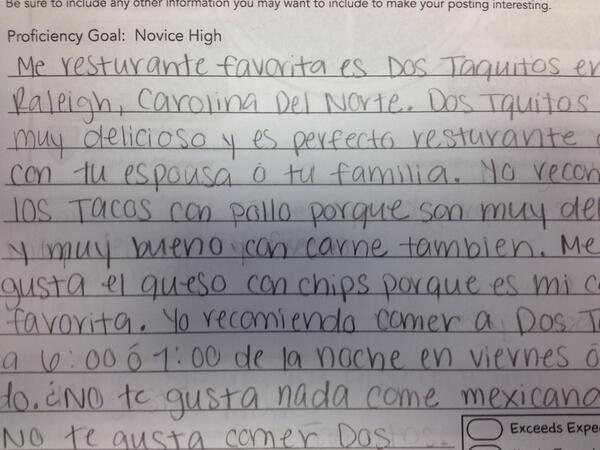 Be sure to include any other information you may want to include to make your posting interesting.
Proficiency Goal: Novice High
Me resturante favorita es Dos Taquitos en
Raleigh, Carolina Del Norte. Dos Tquitos
muy delicioso y es perfecto resturante
con tu espousa o tu familia. Yo recon
los Tacos con pollo porque son muy del
y muy bueno con carne tambien. Me
gusta el queso con chips porque es mi c
favorita. Yo recomiendo comer a Dos T
a 6:00 ó 7:00 de la noche en viernes ó
do. ¿No te gusta nada come mexicana
No te gusta comer Dos
Exceeds Expe